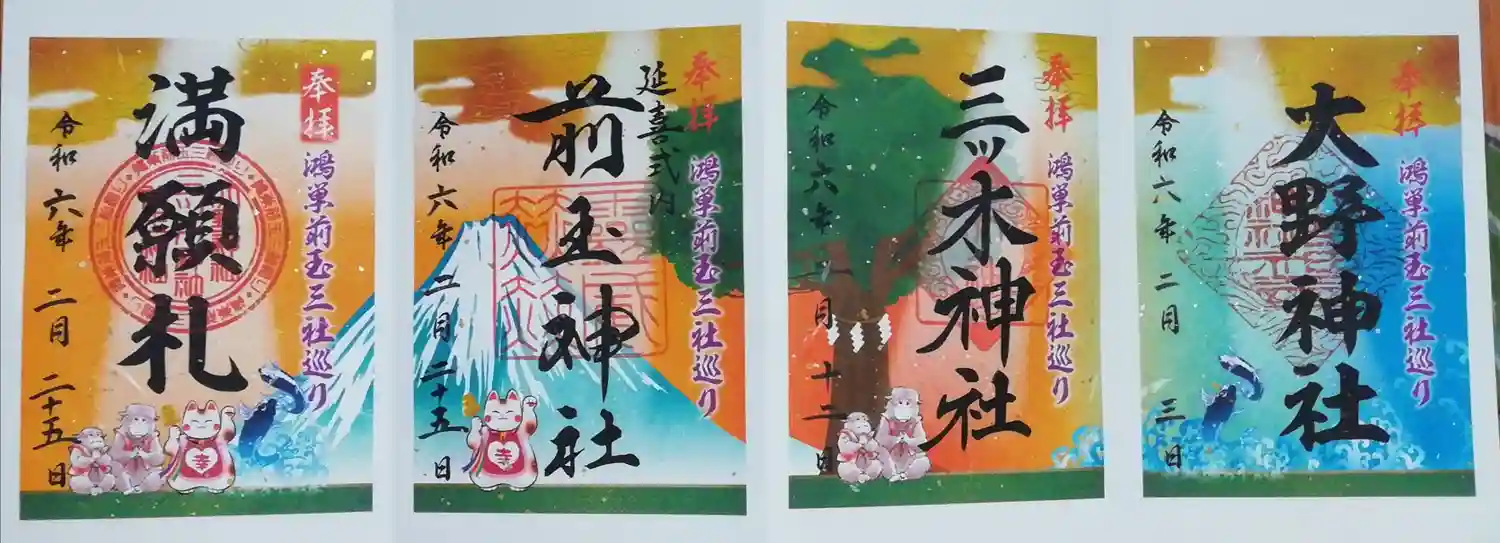 奉拝
鴻巣前玉三社巡り
大野神社
令和六年 二月 三日
奉拝
鴻巣前玉三社巡り
三ッ木神社
令和六年 二月 十二日
奉拝
鴻巣前玉三社巡り
延喜式内
前玉神社
令和六年 二月 二十五日
幸
奉拝
鴻巣前玉三社巡り
満願札
令和六年 二月 二十五日
幸